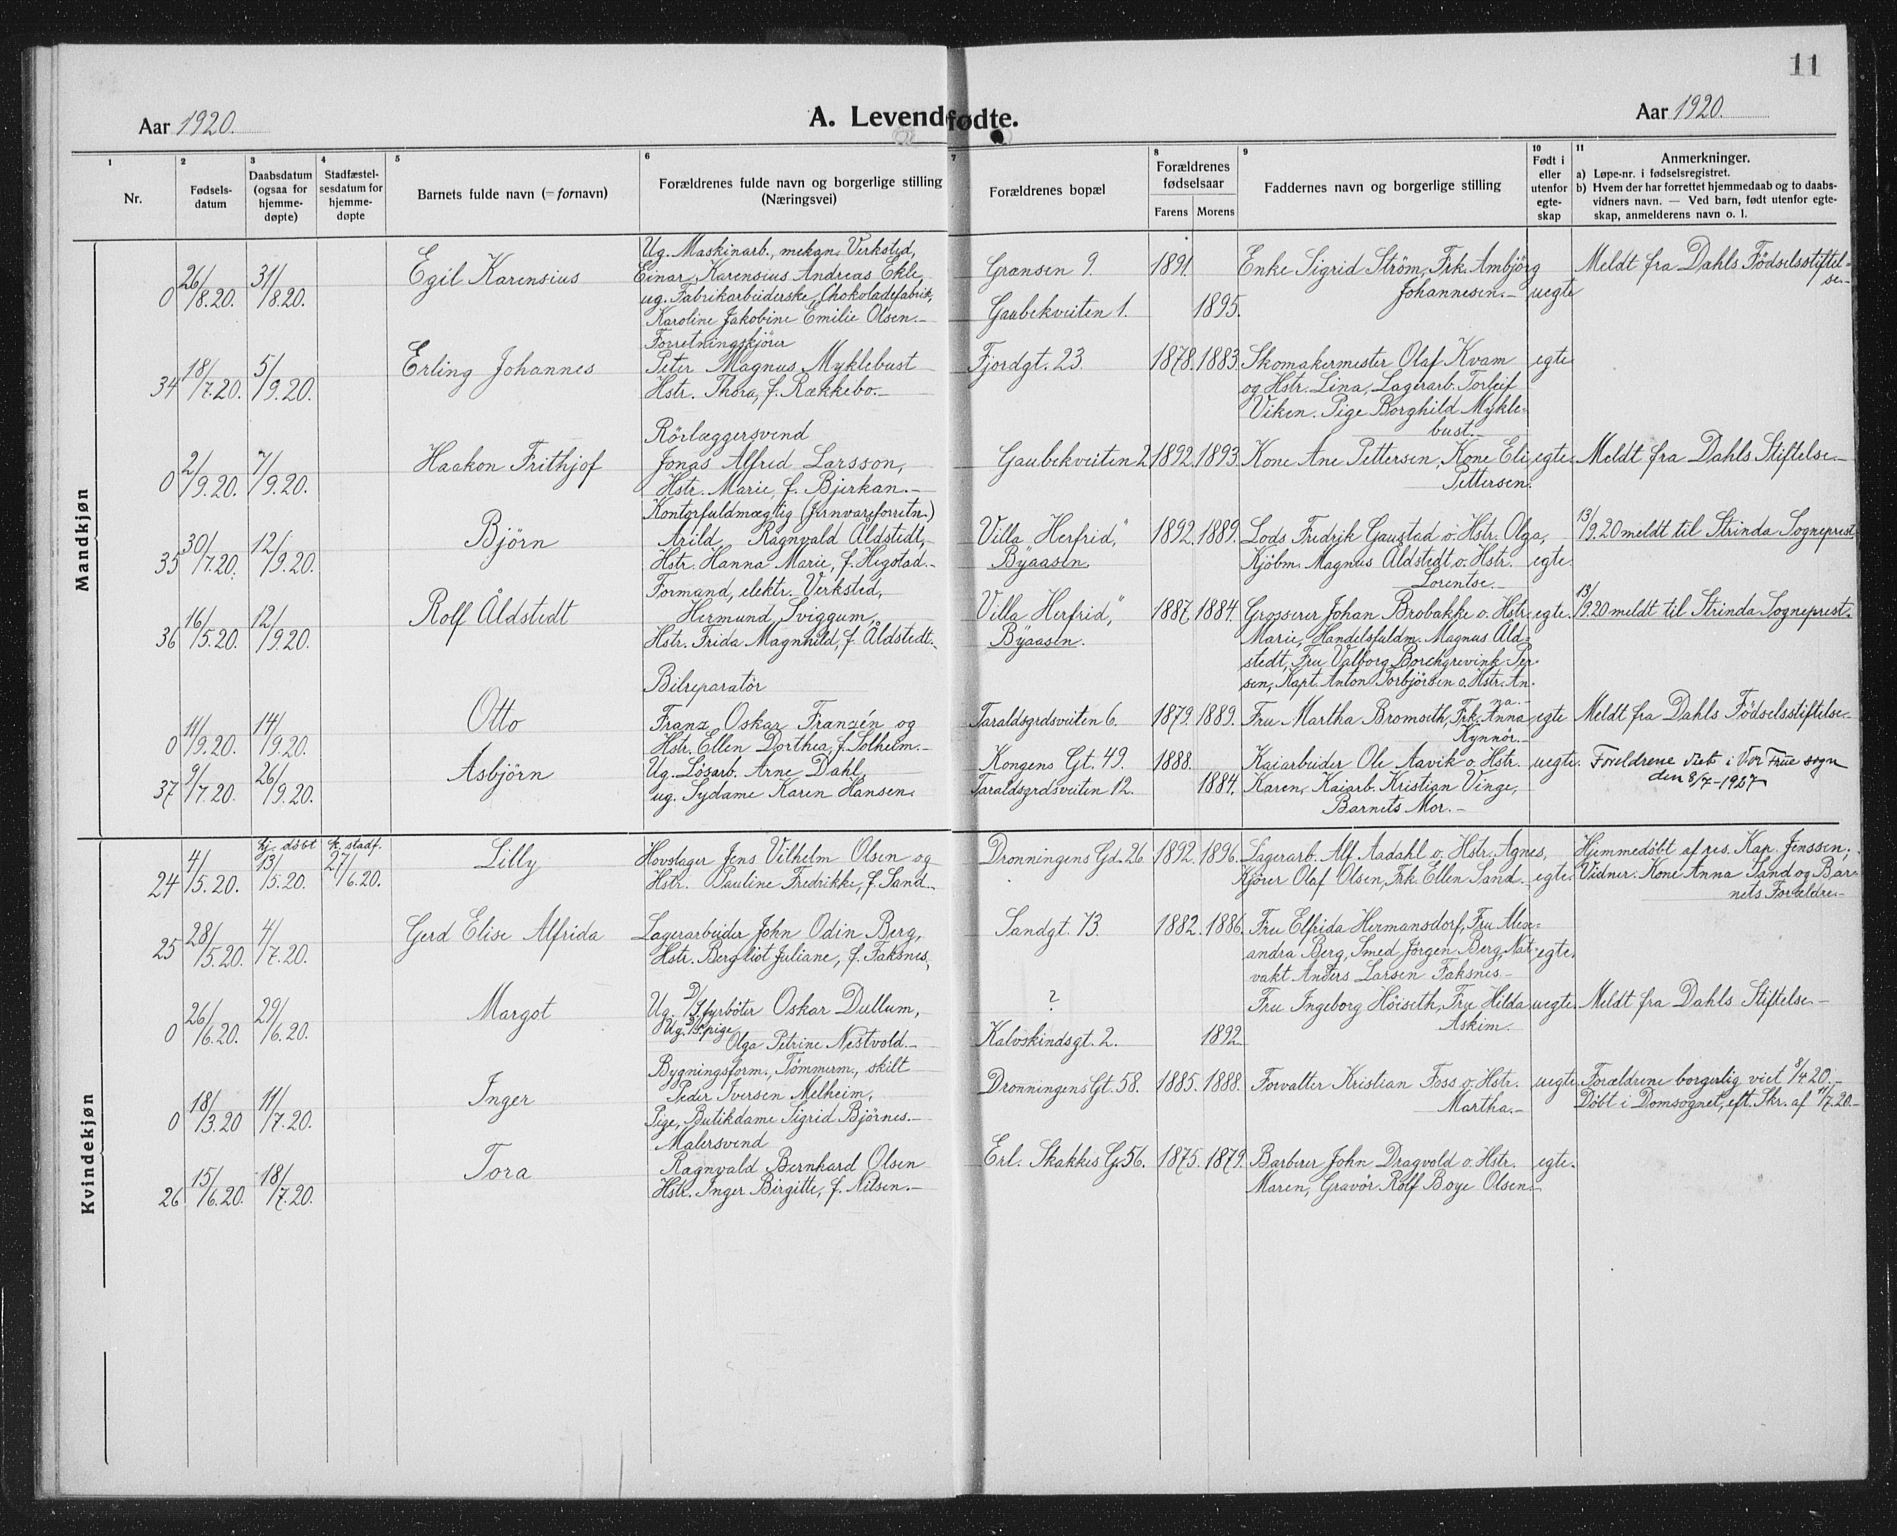 11
Aar 1920.
A. Levendfødte.
Aar 1920.
1
Nr.
2
Fødsels-
datum
3
Daabsdatum
(ogsaa for
hjemme-
døpte)
4
Stadfæstel-
sesdatum for
hjemme-
døpte
5
Barnets fulde navn (= fornavn)
6
Forældrenes fulde navn og borgerlige stilling
(Næringsvei)
7
Forældrenes bopæl
8
Forældrenes
fødselsaar
Farens Morens
9
Faddernes navn og borgerlige stilling
10
Født i
eller
utenfor
egte-
skap
11
Anmerkninger.
a) Løpe-nr. i fødselsregistret.
b) Hvem der har forrettet hjemmedaab og to daabs-
vidners navn. — Ved barn, født utenfor egte-
skap, anmelderens navn o. l.
Mandkjøn
0 26/8.20. 31/8.20. Egil Karensius
Ug. Maskinarb., mekan. Verksted,
Einar Karensius Andreas Ekle
ug. Fabrikarbeiderske, Chokoladefabrik,
Karoline Jakobine Emilie Olsen.—
Grænsen 9. 1891.
Gaubekveiten 1. 1895.
Enke Sigrid Ström, Frk. Ambjörg
Johannesen.— uegte
Meldt fra Dahls Födselsstiftel-
se.—
34 18/7.20. 5/9.20. Erling Johannes
Forretningskjörer
Peter Magnus Myklebust
Hstr. Thora, f. Rækkebo.—
Fjordgt. 23 1878. 1883.
Skomakermester Olaf Kvam
og Hstr. Lina, Lagerarb. Torleif
Viken. Pige Borghild Mykle-
bust.—
egte
0 2/9.20. 7/9.20. Haakon Frithjof
Rörlæggersvend
Jonas Alfred Larsson,
Hstr. Marie, f. Bjerkan.—
Gaubekveiten 2 1892. 1893.
Kone Ane Pettersen, Kone Eli
Pettersen.
egte. Meldt fra Dahls Stiftelse.—
35 30/7.20. 12/9.20. Björn
Kontorfuldmægtig (Jernvareforretn.)
Arild Ragnvald Åldstedt,
Hstr. Hanna Marie, f. Hegstad.—
Villa "Herfrid,"
Byaasen.
1892. 1889.
Lods Fredrik Gaustad o. Hstr. Olga,
Kjöbm. Magnus Aldstedt o. Hstr.
Lorentse.—
egte.
13/9.20 meldt til Strinda Sogneprest
36 16/5.20. 12/9.20. Rolf Åldstedt
Formand, elektr. Verksted,
Hermund Sviggum,
Hstr. Frida Magnhild, f. Åldstedt.
Villa "Herfrid,"
Byaasen.
1887. 1884.
Grosserer Johan Brobakke o. Hstr.
Marie, Handelsfuldm. Magnus Ald-
stedt, Fru Valborg Borchgrevink Per-
sen, Kapt. Anton Torbjörsen o. Hstr. An-
na.—
egte.
13/9.20 meldt til Strinda Sogneprest.
0 11/9.20. 14/9.20. Otto
Bilreparatör
Franz Oskar Franzén og
Hstr. Ellen Dorthea, f. Solheim.—
Taraldsgrdsveiten 6. 1879. 1889.
Fru Martha Bromseth, Frk. Anna
Kynnör.—
egte Meldt fra Dahls Födselsstiftelse.—
37 9/7.20. 26/9.20. Asbjörn
Ug. Lösarb. Arne Dahl,
ug. Sydame Karen Hansen.
Kongens Gt. 49. 1888.
Taraldsgrdsveiten 12. 1884.
Kaiarbeider Ole Aavik o. Hstr.
Karen, Kaiarb. Kristian Vinge,
Barnets Mor.—
uegte. Foreldrene viet i Vor Frue sogn
den 8/7-1927
Kvindekjøn
24 4/5.20. hj. döbt 13/5.20. k. stadf. 27/6.20. Lilly
Hovslager Jens Vilhelm Olsen og
Hstr. Pauline Fredrikke, f. Sand.—
Dronningens Gd. 26. 1892. 1896.
Lagerarb. Alf Aadahl o. Hstr. Agnes,
Kjörer Olaf Olsen, Frk. Ellen Sand.—
egte.
Hjemmedöbt af res. Kap. Jenssen;
Vidner: Kone Anna Sand og Bar-
nets Forældre.—
25 28/5.20. 4/7.20. Gerd Elise Alfrida
Lagerarbeider John Odin Berg,
Hstr. Bergliot Juliane, f. Faksnes,
Sandgt. 13. 1882. 1886.
Fru Elfrida Hermansdorf, Fru Alex-
andra Berg, Smed Jörgen Berg, Nat-
vakt Anders Larsen Faksnes.—
egte.
0 26/6.20. 29/6.20. Margot
Ug. D/S fyrböter Oskar Dullum,
Ug. pige
Olga Petrine Nestvold.—
?
Kalvskindsgt. 2. 1892
Fru Ingeborg Höiseth, Fru Hilda
Askim.
uegte. Meldt fra Dahls Stiftelse.—
0 18/3.20 11/7.20. Inger
Bygningsform., Tömmerm., skilt
Peder Iversen Melheim,
Pige, Butikdame Sigrid Björnes.—
Dronningens Gt. 58. 1885. 1888.
Forvalter Kristian Foss o. Hstr.
Martha.—
uegte Forældrene borgerlig viet 8/4 20.—
Döbt i Domsognet, eft. Skr. af 11/7.20.—
26 15/6.20. 18/7.20. Tora
Malersvend
Ragnvald Bernhard Olsen
Hstr. Inger Birgitte, f. Nilsen.—
Erl. Skakkes G. 56. 1875. 1879.
Barberer John Dragvold o. Hstr.
Maren, Gravör Rolf Boye Olsen.—
egte.